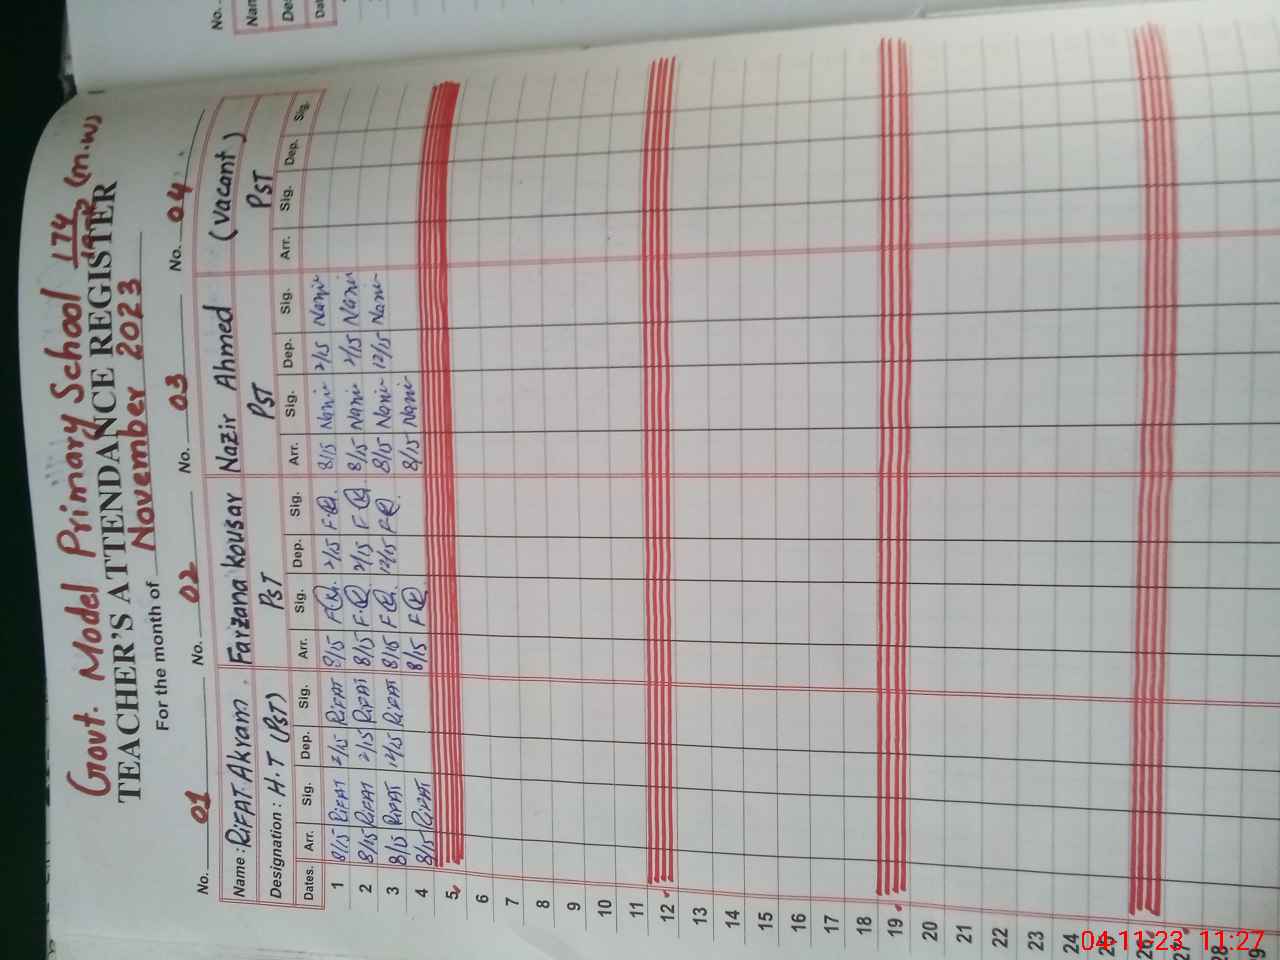 Govt. Model Primary School 174 (m.w)
TEACHER'S ATTENDANCE REGISTER
For the month of November 2023
No. 01 No. 02 No. 03 No. 04
Name: RIFAT Akram. Farzana Kousar Nazir Ahmed (Vacant)
Designation: H.T (PST) PST PST PST
Dates. Arr. Sig. Dep. Sig. Arr. Sig. Dep. Sig. Arr. Sig. Dep. Sig. Arr. Sig. Dep. Sig.
1 8/15 RIFAT 2/15 RIFAT 8/15 2/15 8/15 Nazir 2/15 Nazir
2 8/15 RIFAT 2/15 RIFAT 8/15 2/15 8/15 Nazir 2/15 Nazir
3 8/15 RIFAT 12/15 RIFAT 8/15 12/15 8/15 Nazir 12/15 Nazir
4 8/15 RIFAT 8/15 8/15 Nazir
5
6
7
8
9
10
11
12
13
14
15
16
17
18
19
20
21
22
23
24
26
27
28
No.
04-11-23 11:27